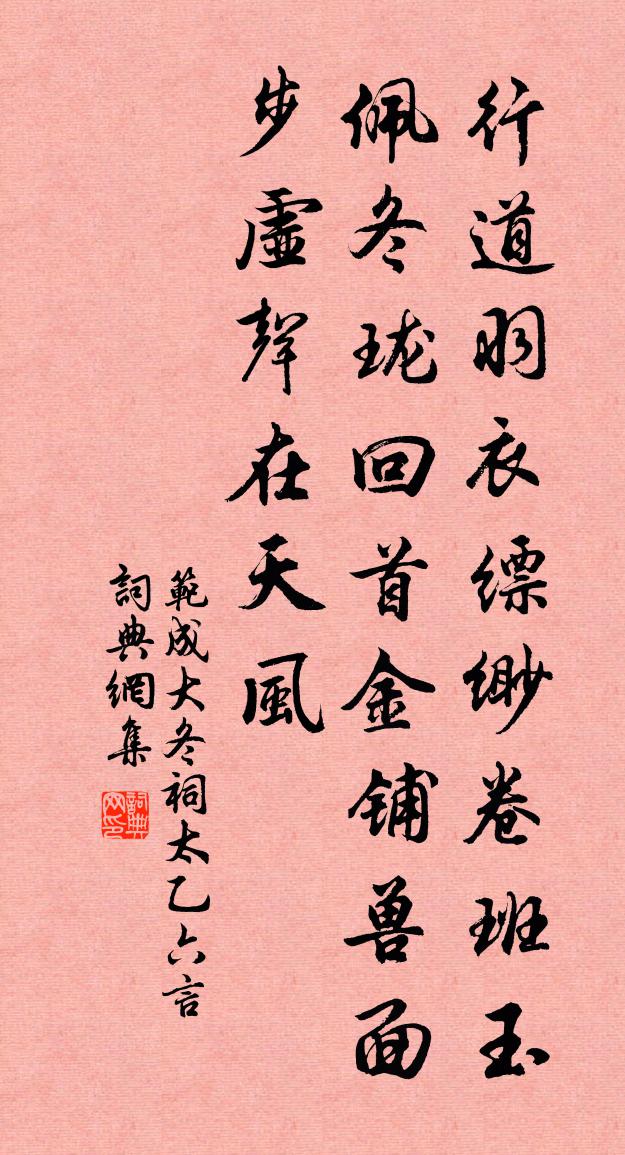 行道羽衣縹緲卷班玉
佩冬珑回首金铺兽面
步虛聲在天風
範成大冬祠太乙六言
詞典網集
詞典网印